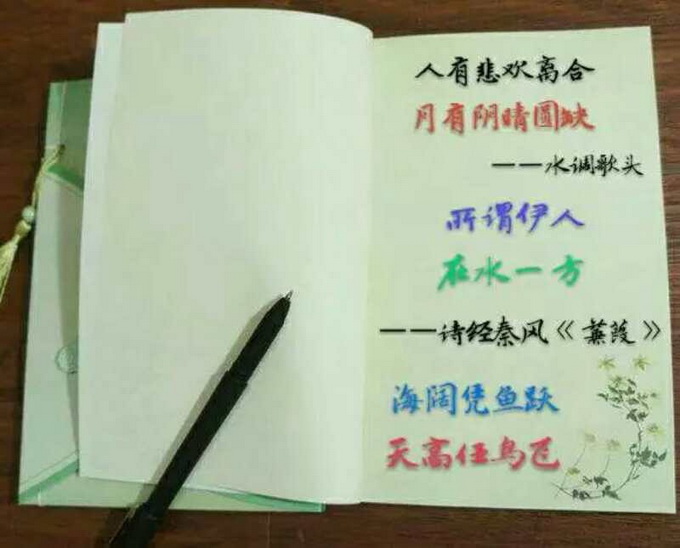 人有悲欢离合
月有阴晴圆缺
——水调歌头
所谓伊人
在水一方
——诗经秦风《蒹葭》
海阔凭鱼跃
天高任鸟飞